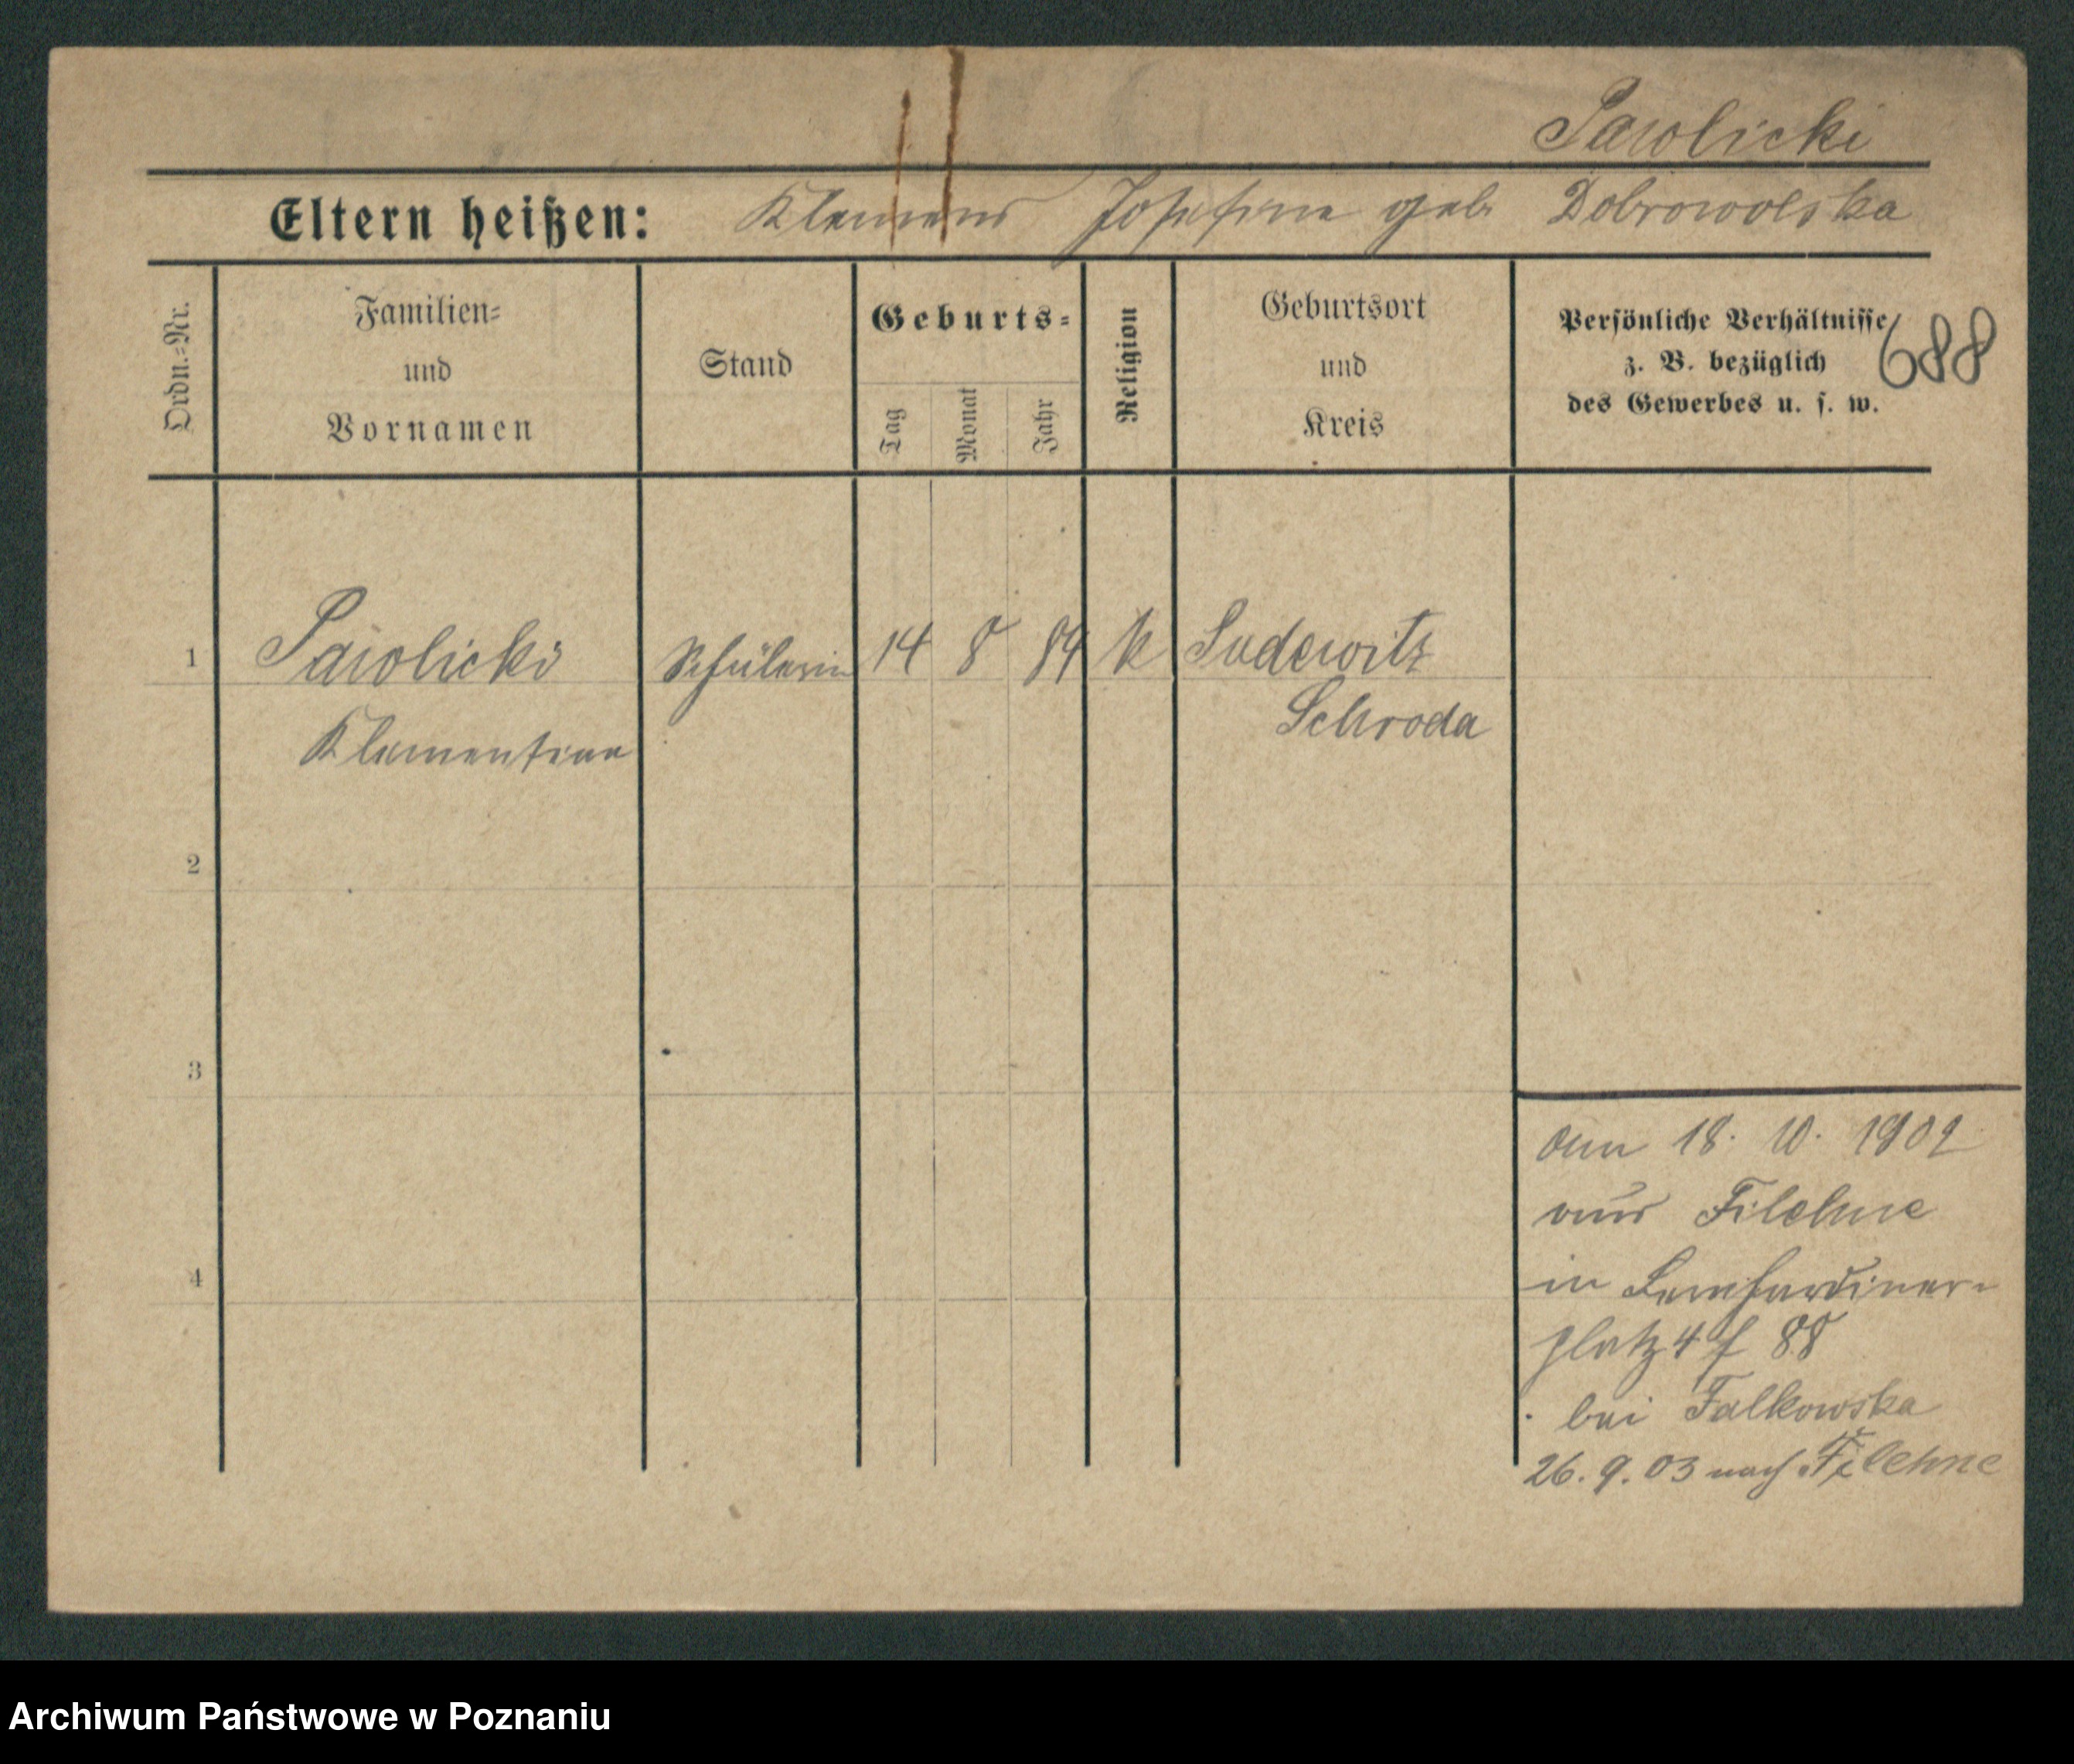 Pawlicki
Eltern heißen: Klemens Josefine geb Dobrowolska
Ordn.-Nr.
Familien-
und
Vornamen
Stand
Geburts-
Tag
Monat
Jahr
Religion
Geburtsort
und
Kreis
Persönliche Verhältnisse
z. B. bezüglich
des Gewerbes u. s. w.
688
1 Pawlicki Schülerin 14 8 84 k Sudewitz
Klementine Schroda
2
3
4
Am 18. 10. 1902
aus Filehne
in Bernhardiner-
platz 4 f 88
bei Falkowska
26. 9. 03 nach Filehne
Archiwum Państwowe w Poznaniu